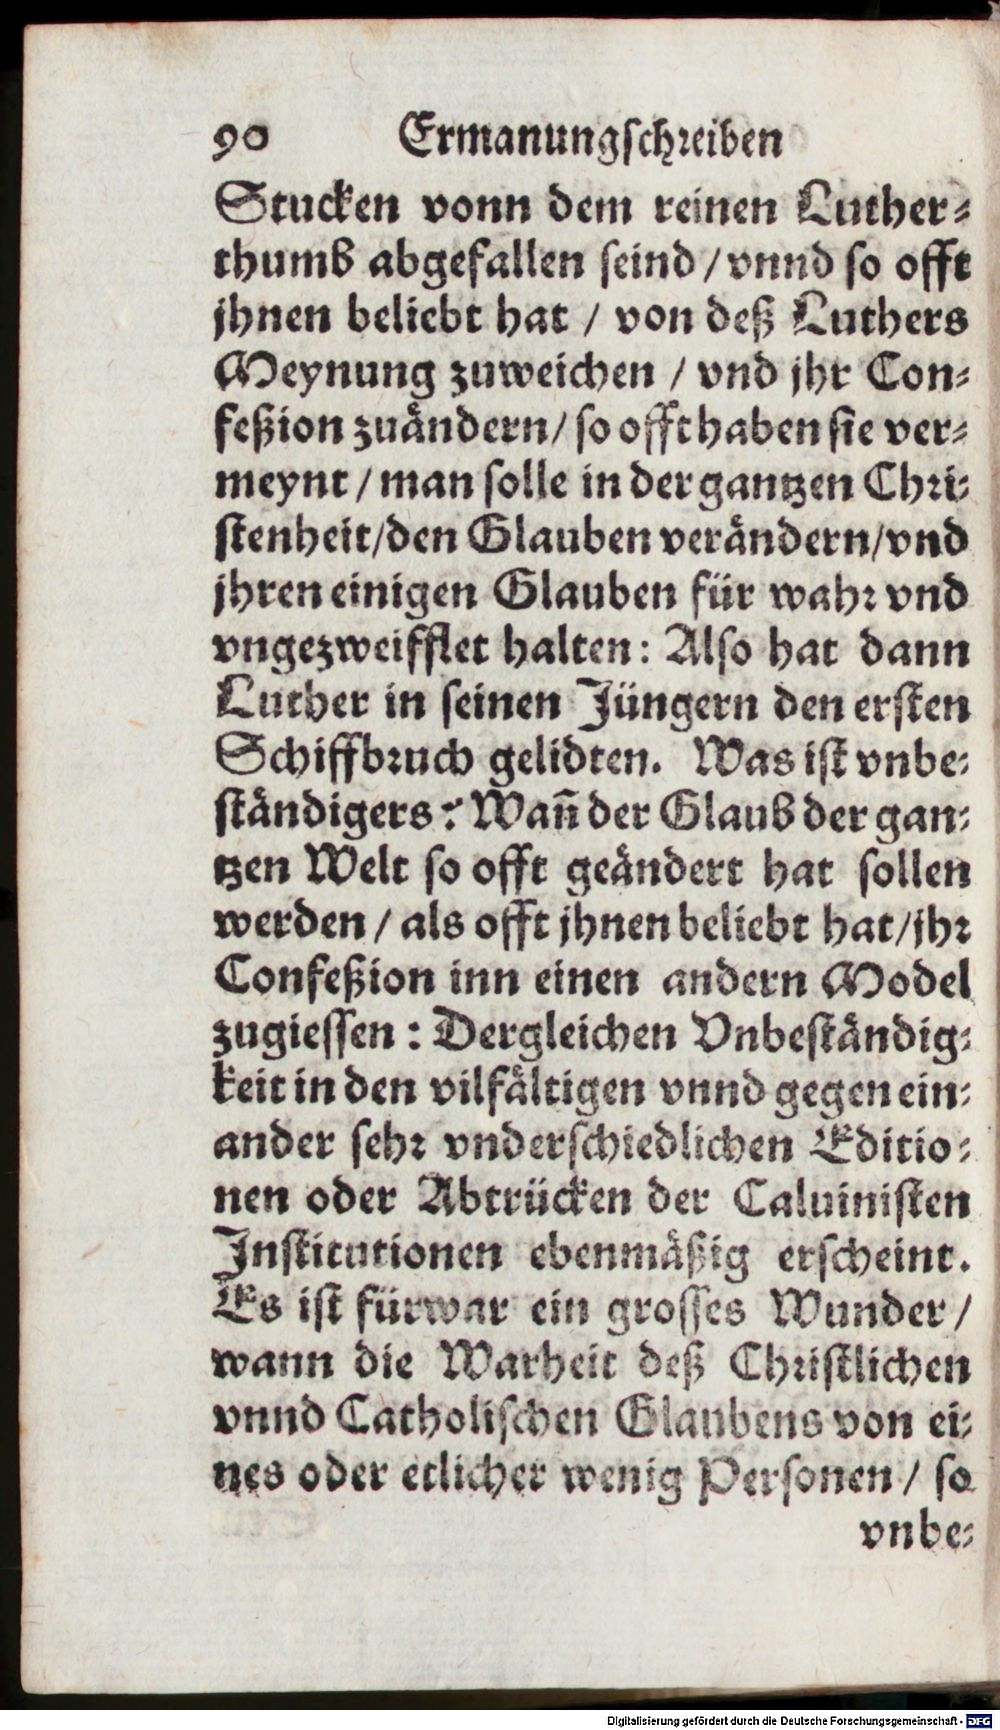 90 Ermanungschreiben
Stucken vonn dem reinen Luther⸗
thumb abgefallen seind / vnnd so offt
jhnen beliebt hat / von deß Luthers
Meynung zuweichen / vnd jhr Con⸗
feßion zuändern / so offt haben sie ver⸗
meynt / man solle in der gantzen Chri⸗
stenheit / den Glauben verändern / vnd
jhren einigen Glauben für wahr vnd
vngezweifflet halten: Also hat dann
Luther in seinen Jüngern den ersten
Schiffbruch gelidten. Was ist vnbe⸗
ständigers? Wañ der Glaub der gan⸗
tzen Welt so offt geändert hat sollen
werden / als offt jhnen beliebt hat / jhr
Confeßion inn einen andern Model
zugiessen: Dergleichen Vnbeständig⸗
keit in den vilfältigen vnnd gegen ein⸗
ander sehr vnderschiedlichen Editio⸗
nen oder Abtrücken der Caluinisten
Institutionen ebenmäßig erscheint.
Es ist fürwar ein grosses Wunder /
wann die Warheit deß Christlichen
vnnd Catholischen Glaubens von ei⸗
nes oder etlicher wenig Personen / so
vnbe⸗
Digitalisierung gefördert durch die Deutsche Forschungsgemeinschaft - DFG